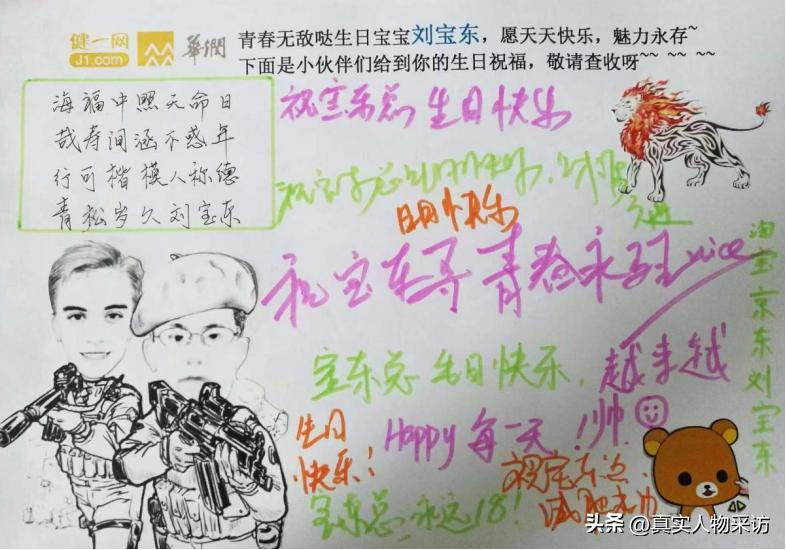 健一网
J1.com
華潤
青春无敌哒生日宝宝刘宝东，愿天天快乐，魅力永存~
下面是小伙伴们给到你的生日祝福，敬请查收呀~~ ~~ ~~
海福中照天命日
哉寿间涵不惑年
行可楷模人称德
青松岁久刘宝东
祝宝东总生日快乐
祝宝东总生日快乐，
日日快乐
祝宝东哥青春永驻
nice
淘宝京东刘宝东
宝东总生日快乐，
越来越
帅
生日
快乐！
Happy 每一天！
祝宝东总
减肥成功
宝东总，永远18！
头条 @真实人物采访